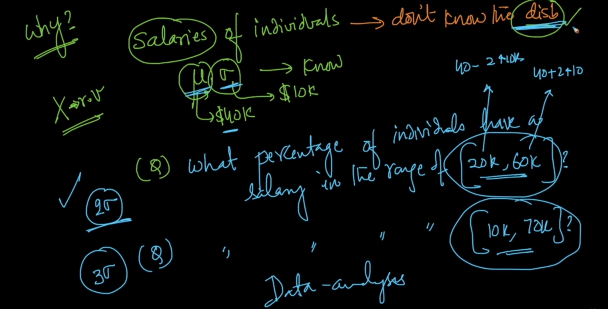 Why? Salaries of individuals → don't know the dist ✓
μ, σ → know
X → r.v
$40k
$10k
40 - 2*10k
40+2*10
(Q) What percentage of individuals have a
salary in the range of [20k, 60k]?
✓ 2σ
3σ (Q) " " " " [10k, 70k]?
Data-analysis